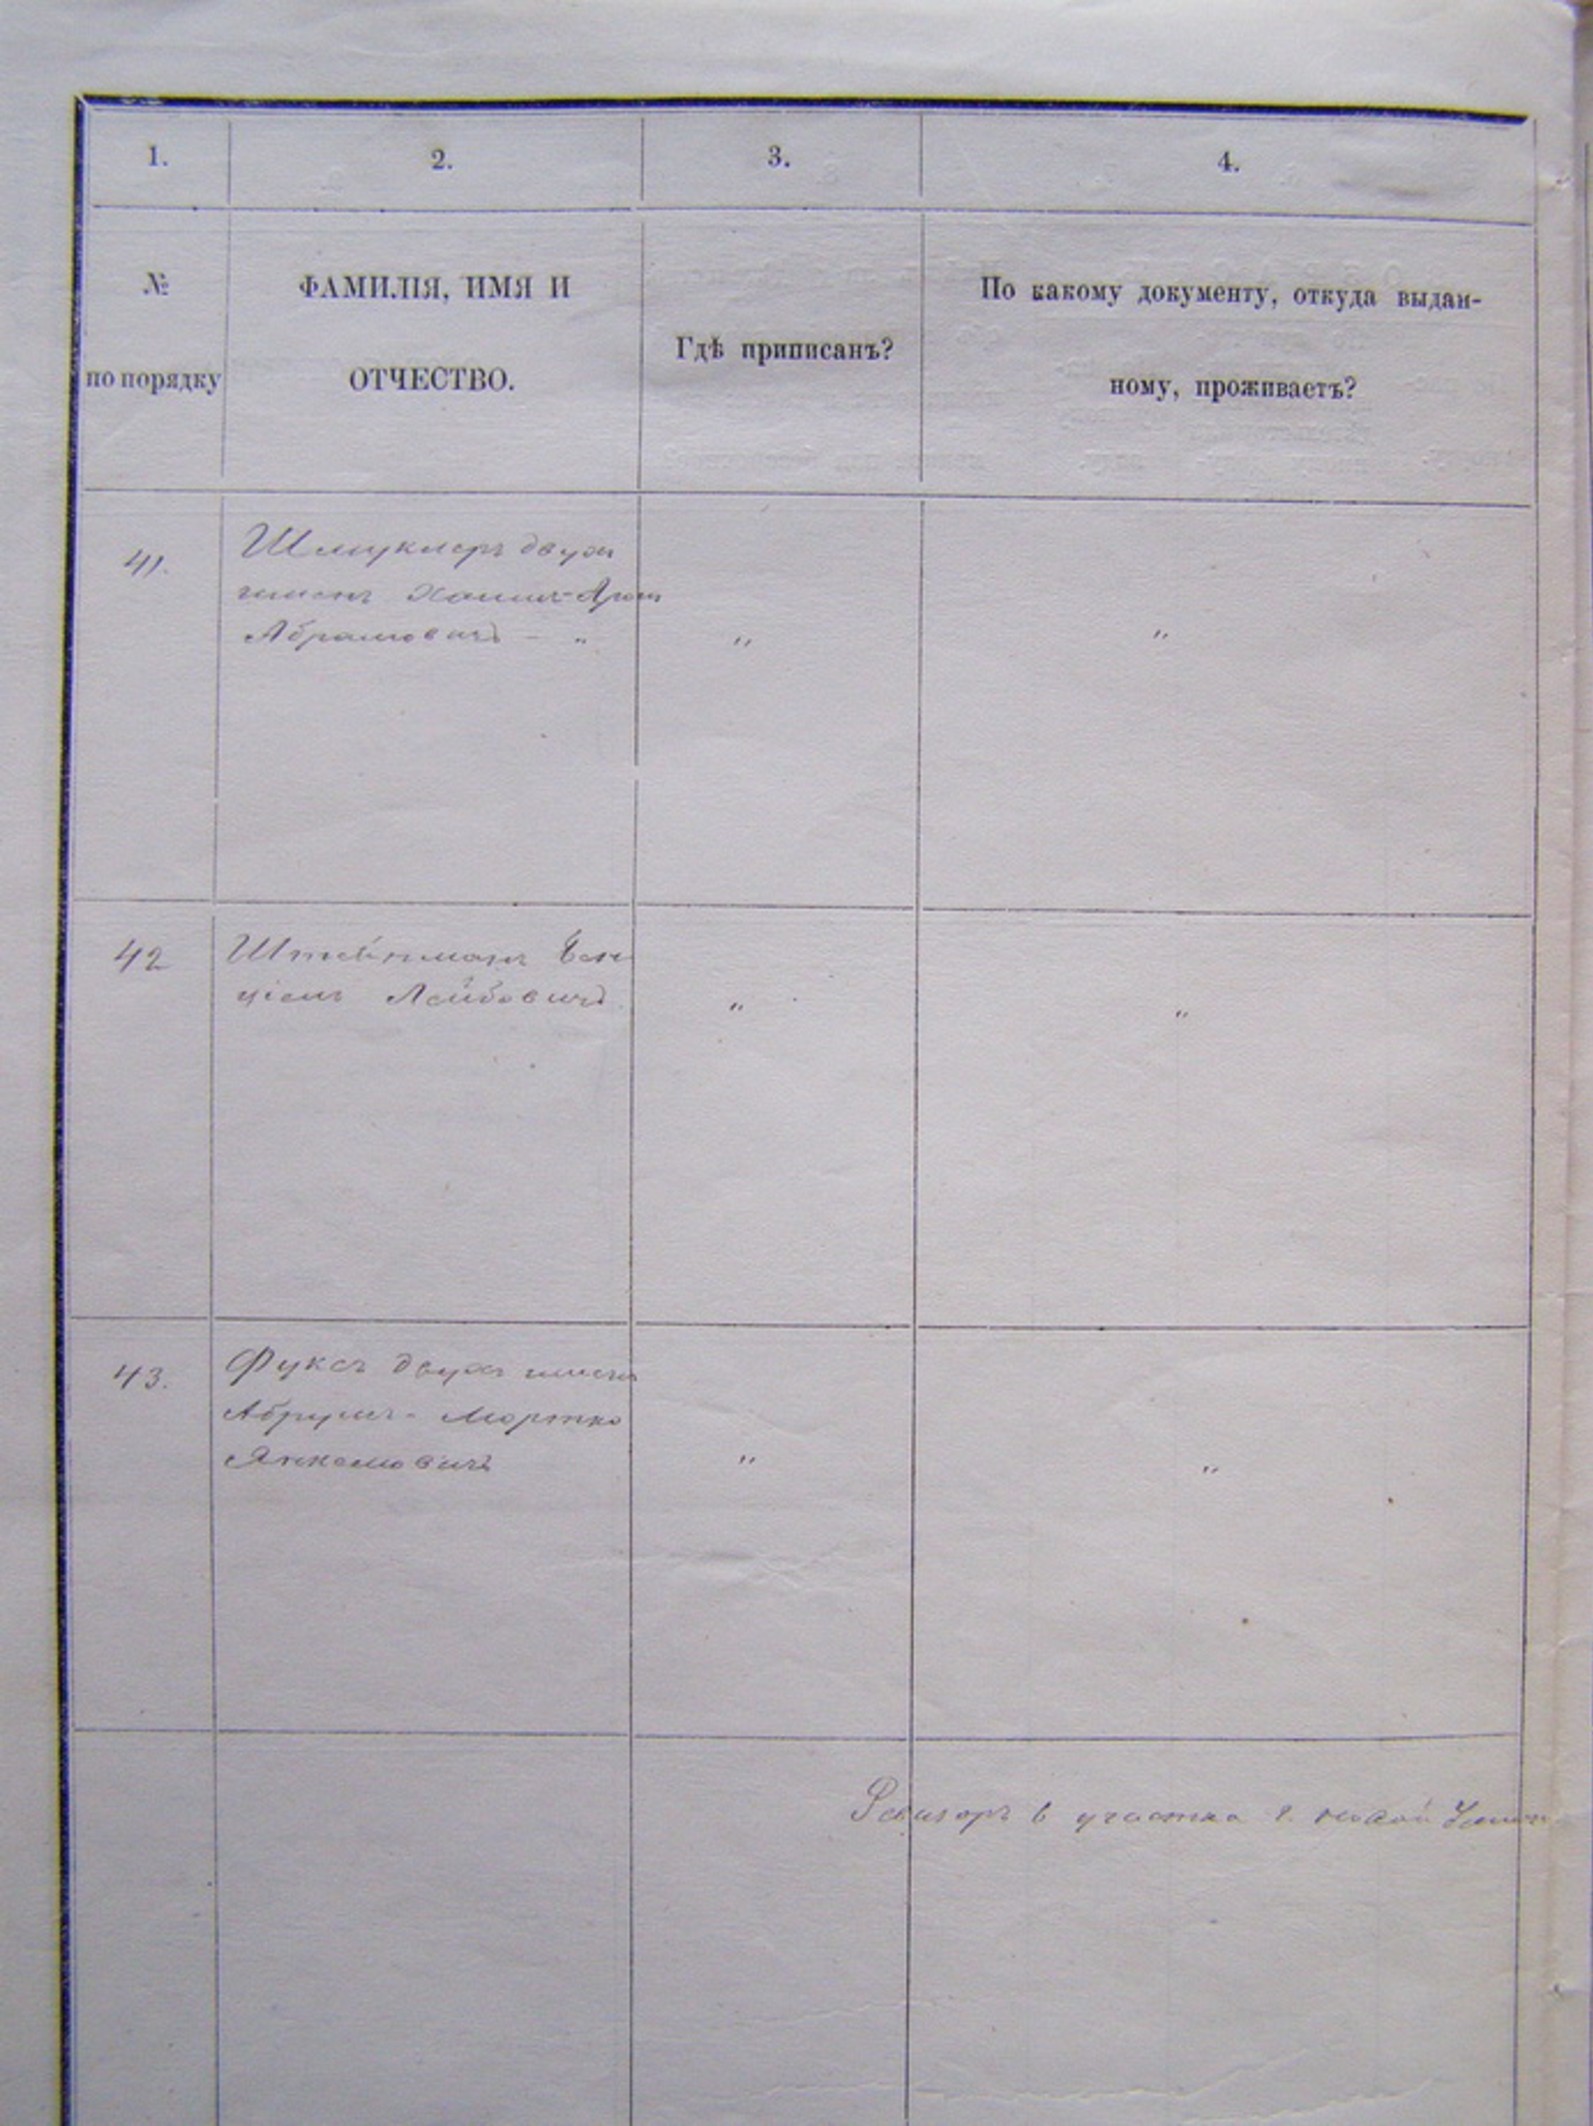 1.
2.
3.
4.
№
по порядку
ФАМИЛІЯ, ИМЯ И
ОТЧЕСТВО.
Гдѣ приписанъ?
По какому документу, откуда выдан-
ному, проживаетъ?
41.
Шмуклеръ двухъ
именъ Хаимъ-Аронъ
Абрамовичъ - "
"
"
42
Штейнманъ Бен
ціонъ Лейбовичъ
"
"
43.
Фуксъ двухъ именъ
Абрумъ-Мортко
Янкелевичъ
"
"
Ревизоръ 6 участка г.